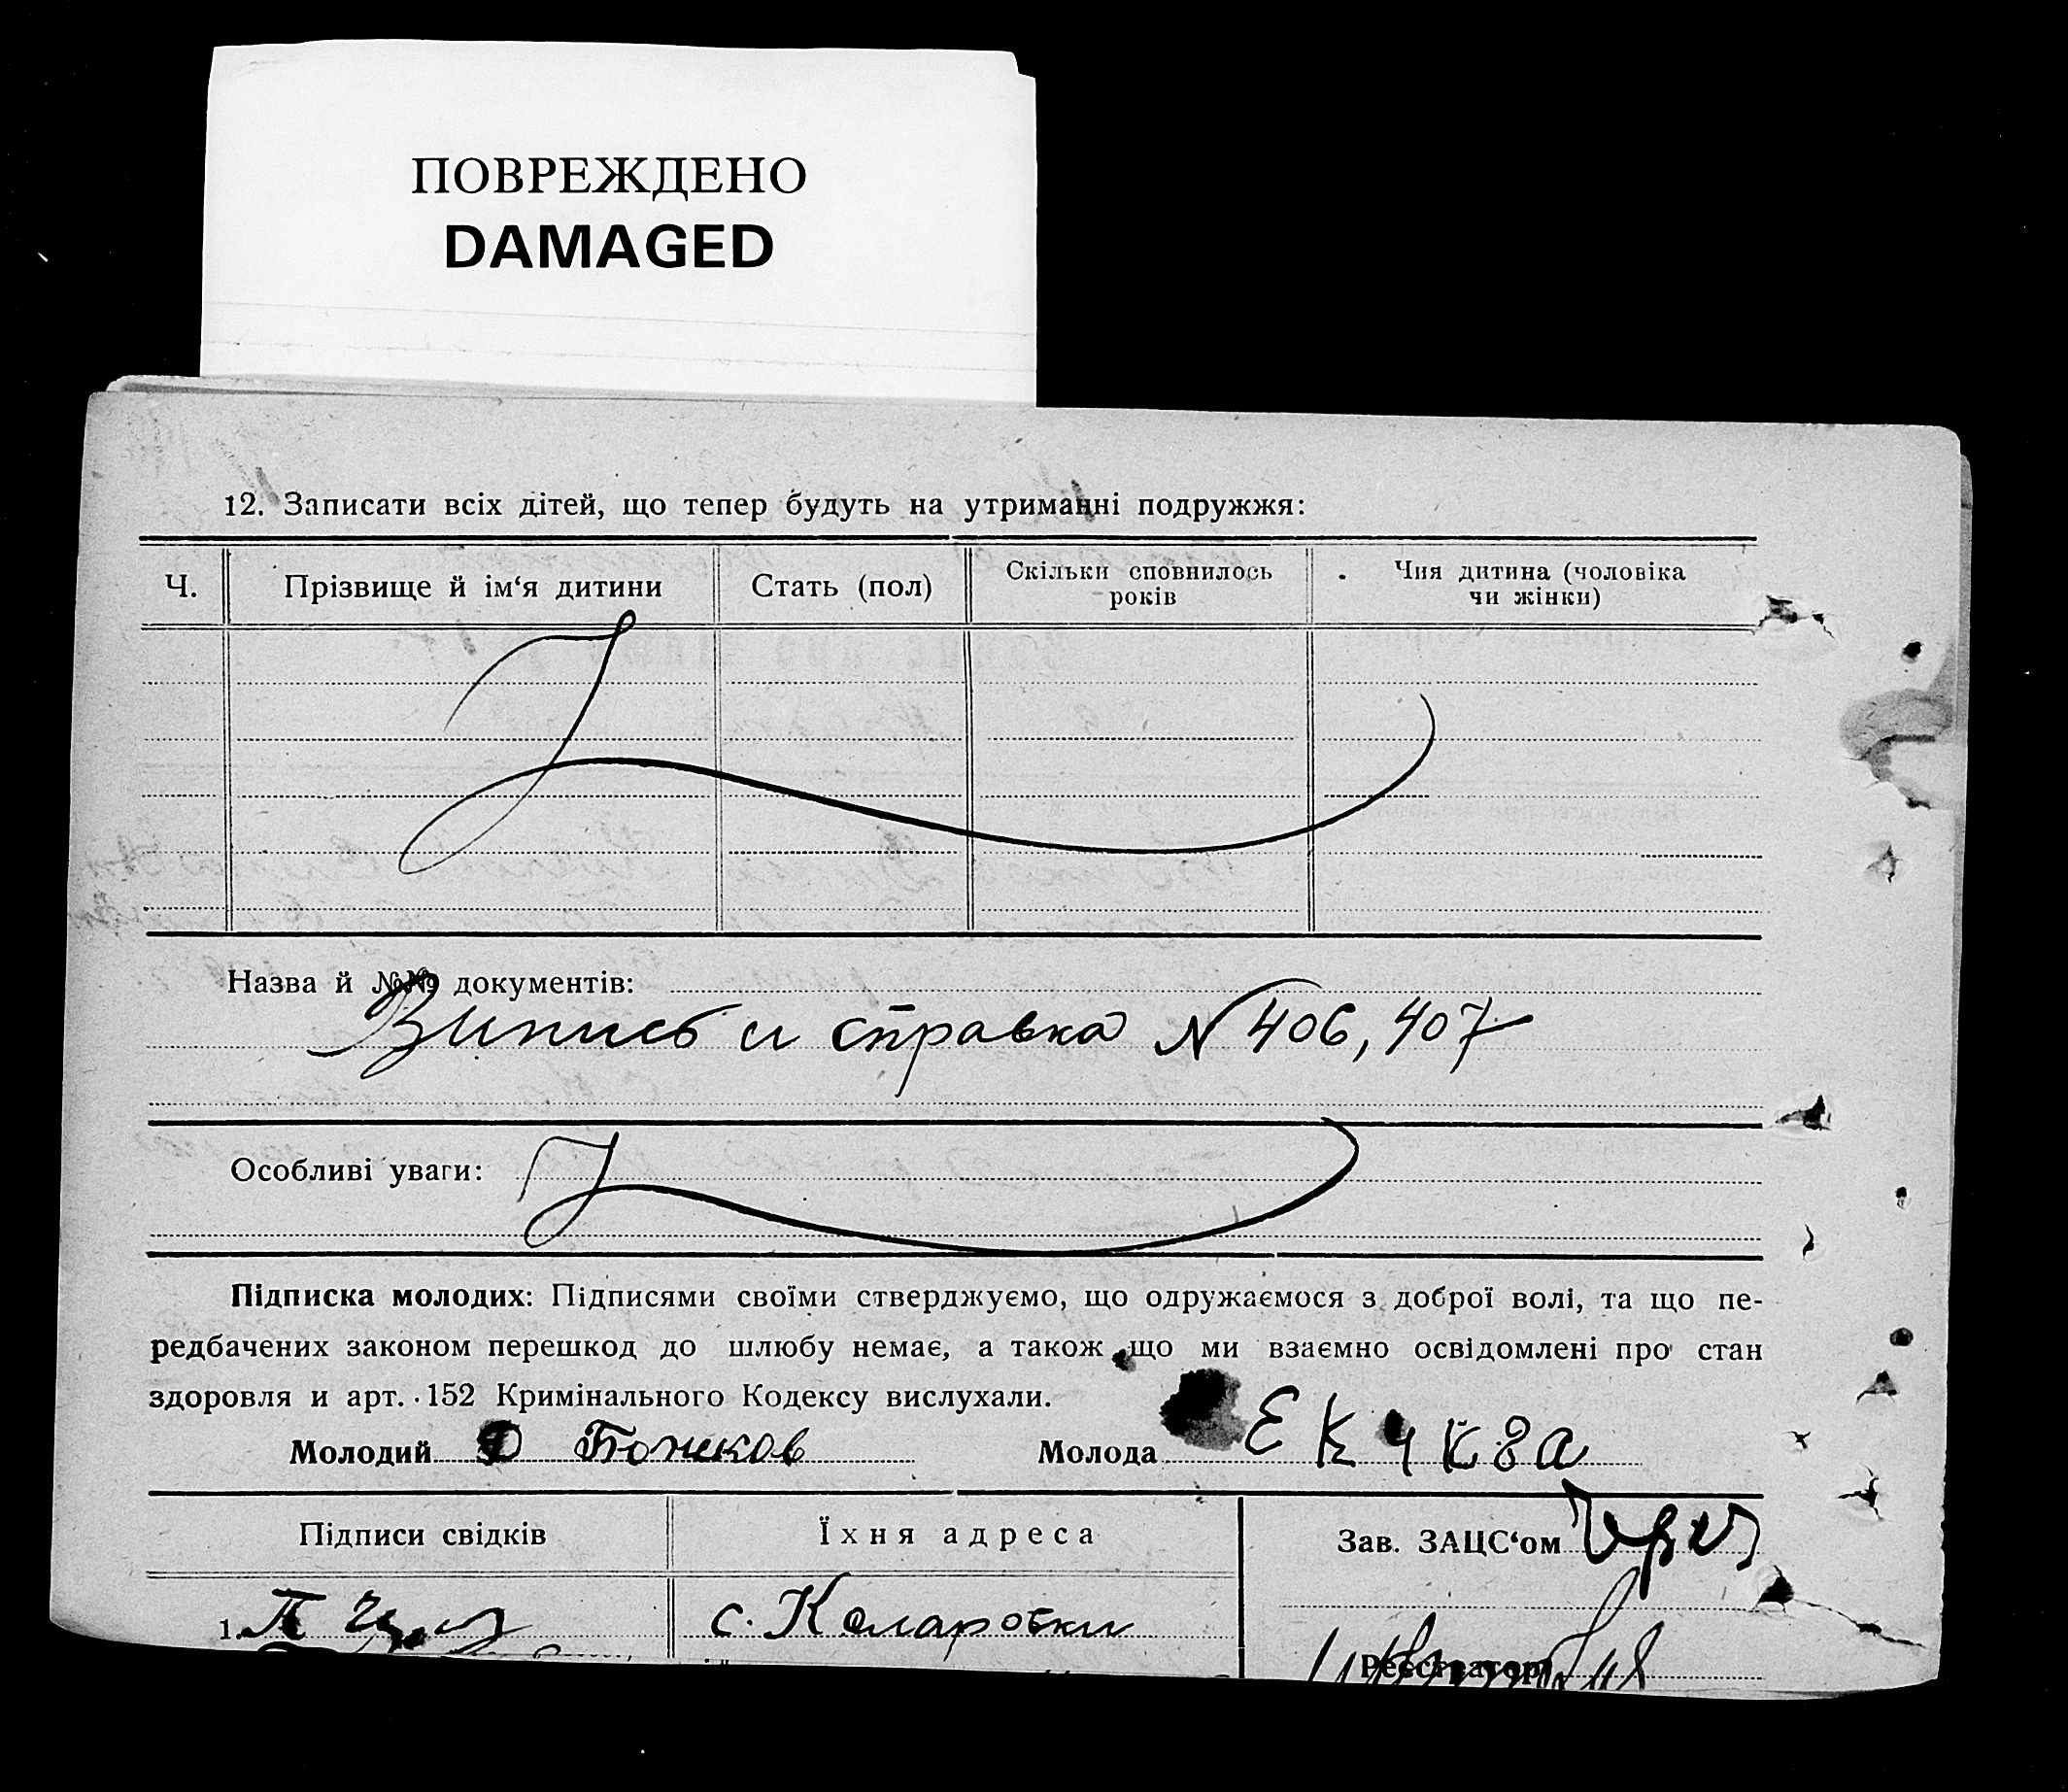 ПОВРЕЖДЕНО
DAMAGED
12. Записати всіх дітей, що тепер будуть на утриманні подружжя:
Ч.
Прізвище й ім‘я дитини
Стать (пол)
Скільки сповнилось
років
Чия дитина (чоловіка
чи жінки)
Назва й №№ документів:
Випись и справка № 406, 407
Особливі уваги:
Підписка молодих: Підписями своїми стверджуємо, що одружаємося з доброї волі, та що пе-
редбачених законом перешкод до шлюбу немає, а також що ми взаємно освідомлені про стан
здоровля и арт. 152 Кримінального Кодексу вислухали.
Молодий
Молода
Підписи свідків
Їхня адреса
Зав. ЗАЦС‘ом
1.
с. Коларовки
Реєстратор